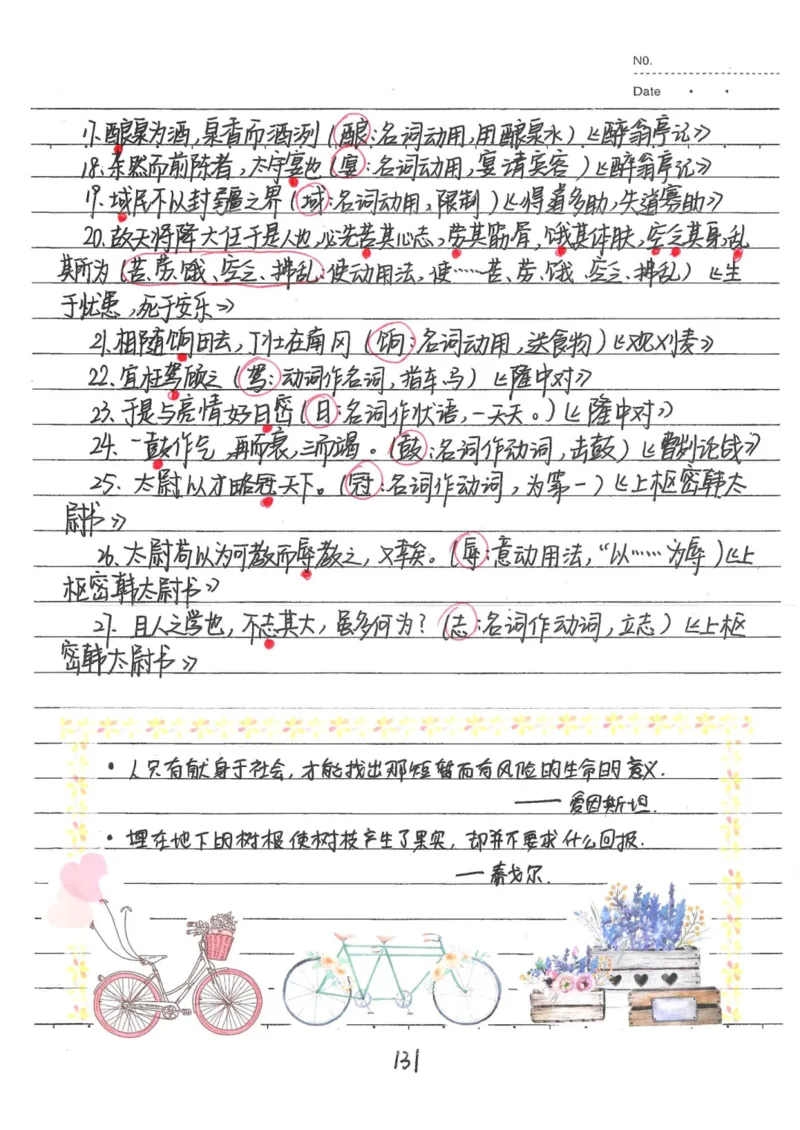 NO.
Date
17. 酿泉为酒,泉香而酒洌(酿:名词动用,用酿泉水)《醉翁亭记》
18. 杂然而前陈者,太守宴也(宴:名词动用,宴请宾客)《醉翁亭记》
19. 域民不以封疆之界(域:名词动用,限制)《得道多助,失道寡助》
20. 故天将降大任于是人也,必先苦其心志,劳其筋骨,饿其体肤,空乏其身,乱
其所为(苦、劳、饿、空乏、拂乱:使动用法,使……苦、劳、饿、空乏、拂乱)《生
于忧患,死于安乐》
21. 相随饷田去,丁壮在南冈(饷:名词动用,送食物)《观刈麦》
22. 宜枉驾顾之(驾:动词作名词,指车马)《隆中对》
23. 于是与亮情好日密(日:名词作状语,一天天。)《隆中对》
24. 一鼓作气,再而衰,三而竭。(鼓:名词作动词,击鼓)《曹刿论战》
25. 太尉以才略冠天下。(冠:名词作动词,为第一)《上枢密韩太
尉书》
26. 太尉苟以为可教而辱教之,又幸矣。(辱:意动用法,“以……为辱)《上
枢密韩太尉书》
27. 且人之学也,不志其大,虽多何为?(志:名词作动词,立志)《上枢
密韩太尉书》
• 人只有献身于社会,才能找出那短暂而有风险的生命的意义.
——爱因斯坦.
• 埋在地下的树根使树枝产生了果实,却并不要求什么回报.
—泰戈尔.
131